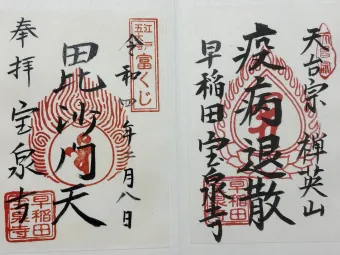 天台宗 禅英山
疫病退散
早稲田宝泉寺
早稲田
富くじ
令和四年二月八日
毘沙門天
奉拝 宝泉寺
早稲田
宝泉寺